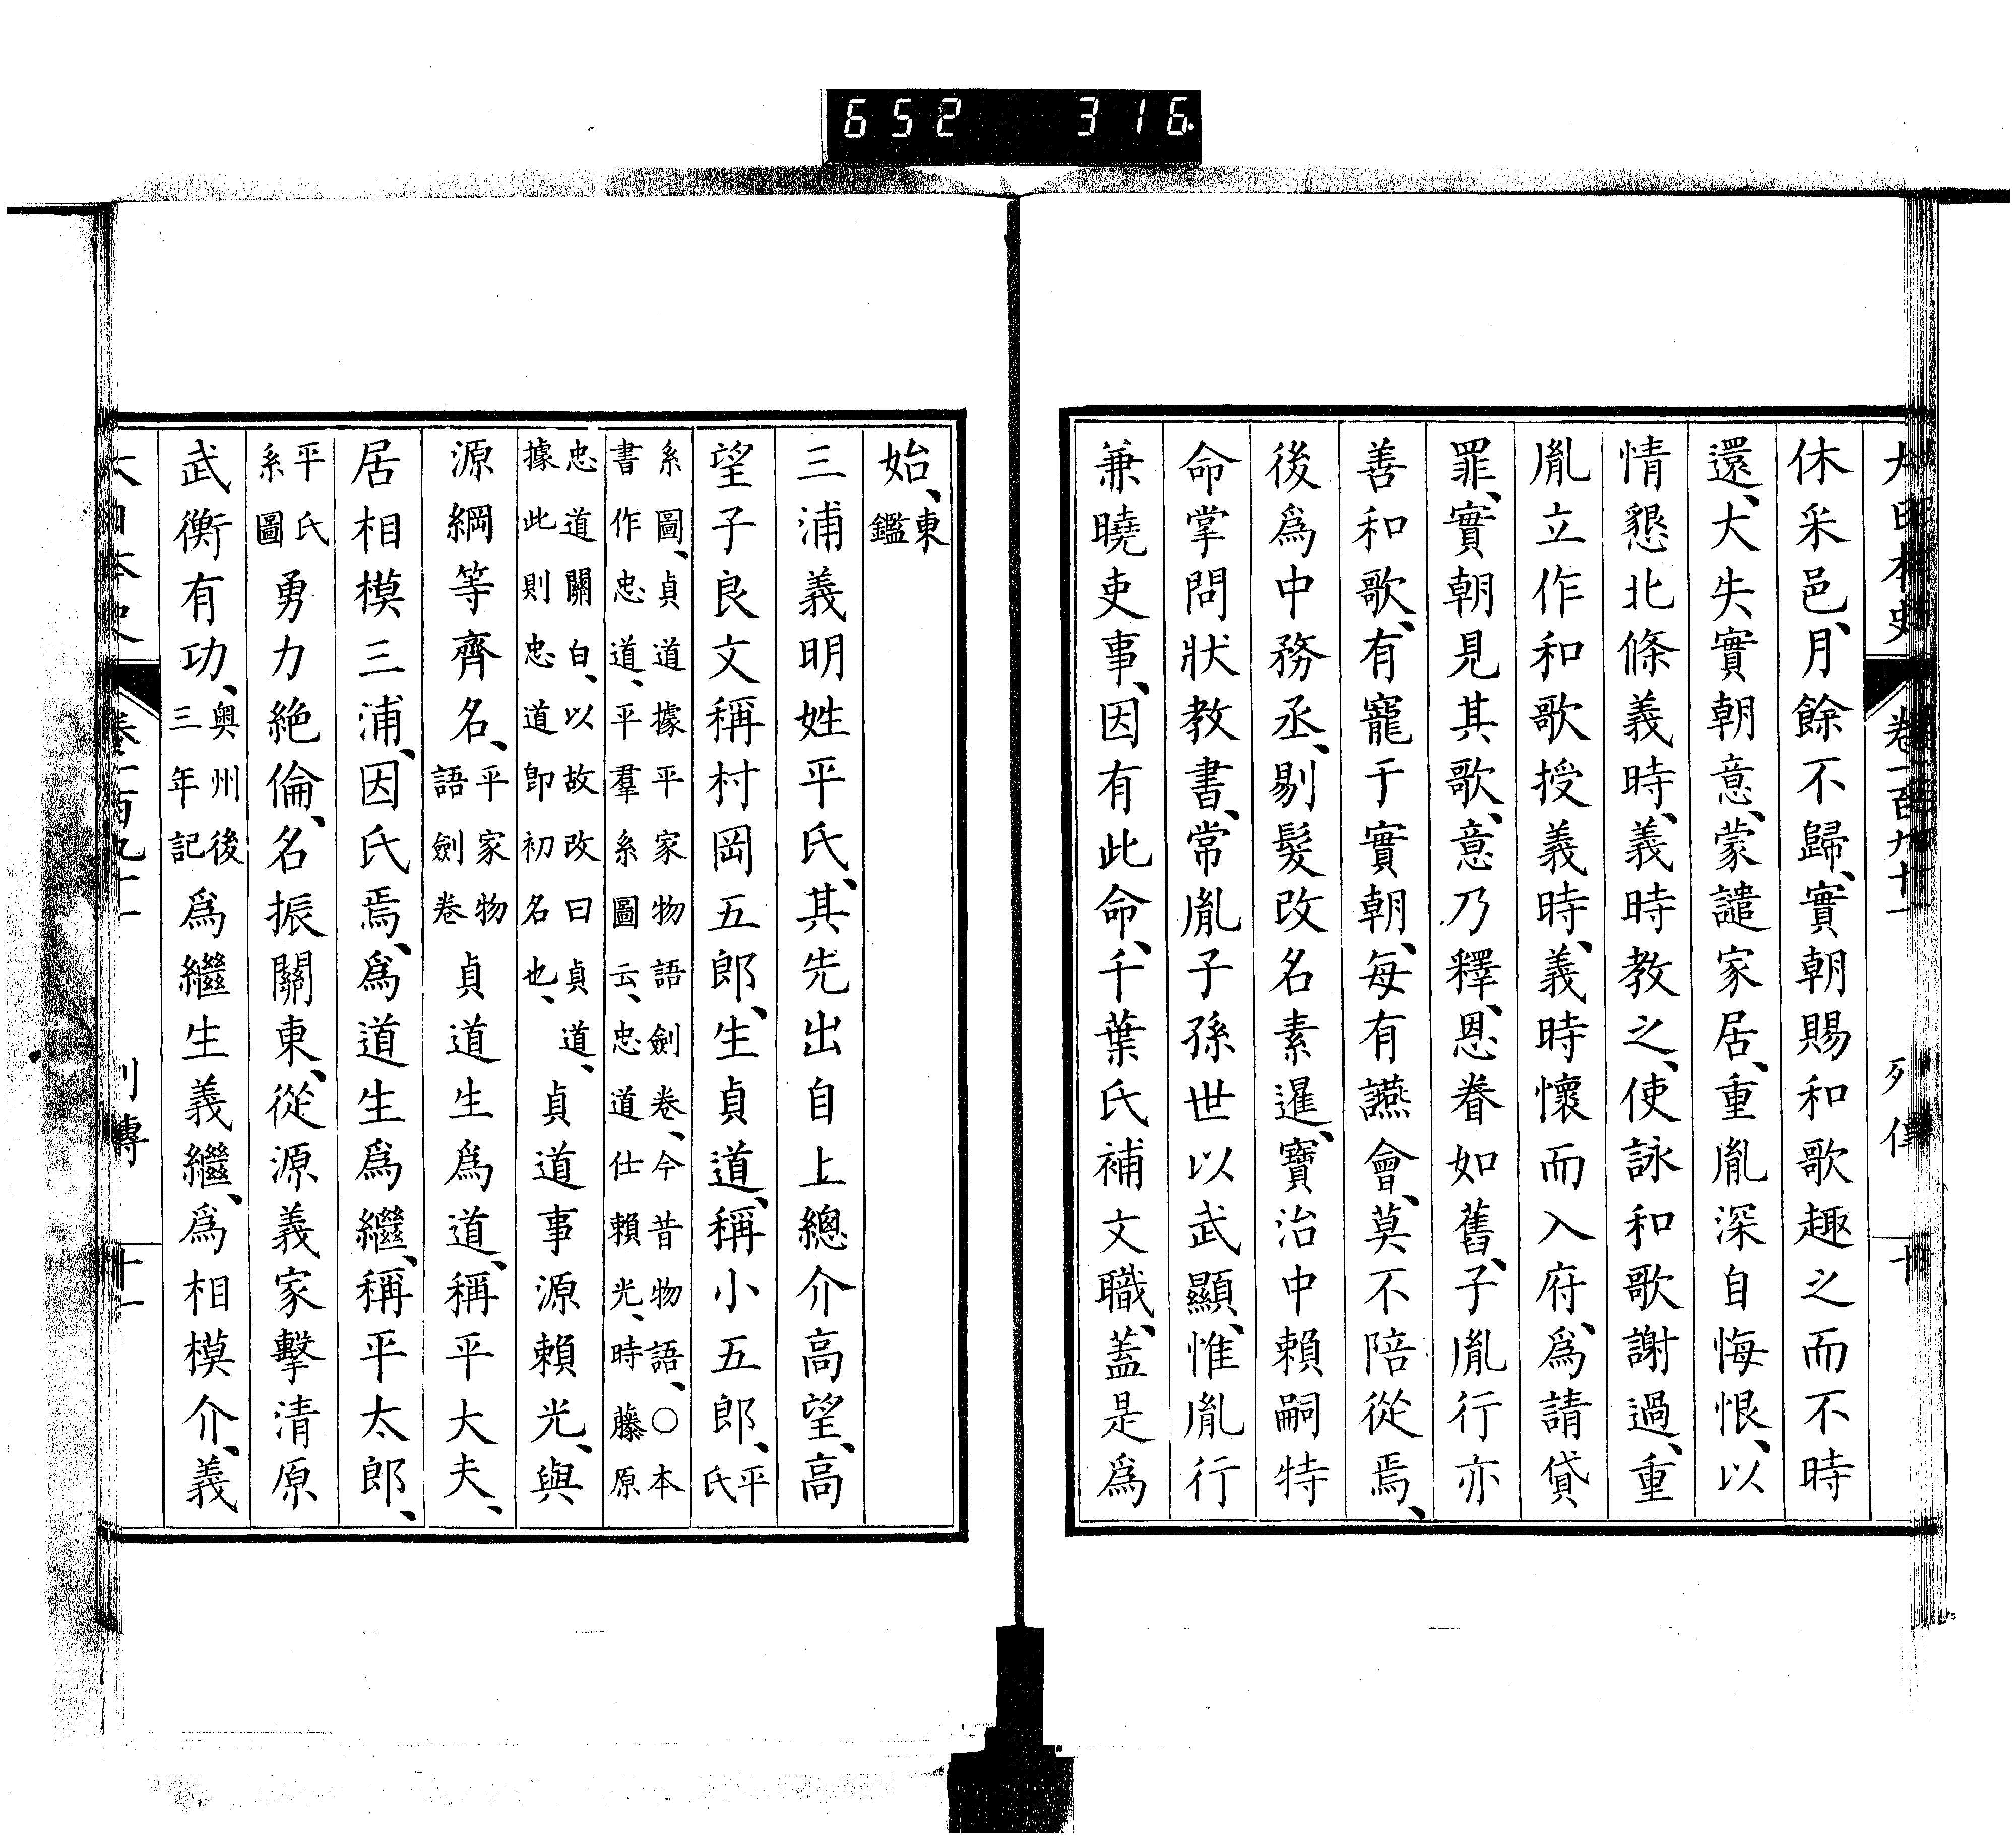 652 316
大日本史 卷一百九十一 列傳 十
休采邑、月餘不歸、實朝賜和歌趣之而不時
還、大失實朝意、蒙譴家居、重胤深自悔恨、以
情懇北條義時、義時教之、使詠和歌謝過、重
胤立作和歌授義時、義時懷而入府、爲請貸
罪、實朝見其歌、意乃釋、恩眷如舊、子胤行亦
善和歌、有寵于實朝、每有讌會、莫不陪從焉、
後爲中務丞、剔髮改名素暹、寶治中賴嗣特
命掌問狀教書、常胤子孫世以武顯、惟胤行
兼曉吏事、因有此命、千葉氏補文職、蓋是爲
始、東鑑
三浦義明姓平氏、其先出自上總介高望、高
望子良文稱村岡五郎、生貞道、稱小五郎、平氏
系圖、貞道據平家物語劍卷、今昔物語、〇本
書作忠道、平羣系圖云、忠道仕賴光、時藤原
忠道關白、以故改曰貞道、
據此則忠道即初名也、貞道事源賴光、與
源綱等齊名、平家物語劍卷貞道生爲道、稱平大夫、
居相模三浦、因氏焉、爲道生爲繼、稱平太郎、
平氏系圖勇力絶倫、名振關東、從源義家擊清原
武衡有功、奧州後三年記爲繼生義繼、爲相模介、義
大日本史 卷一百九十一 列傳 十一